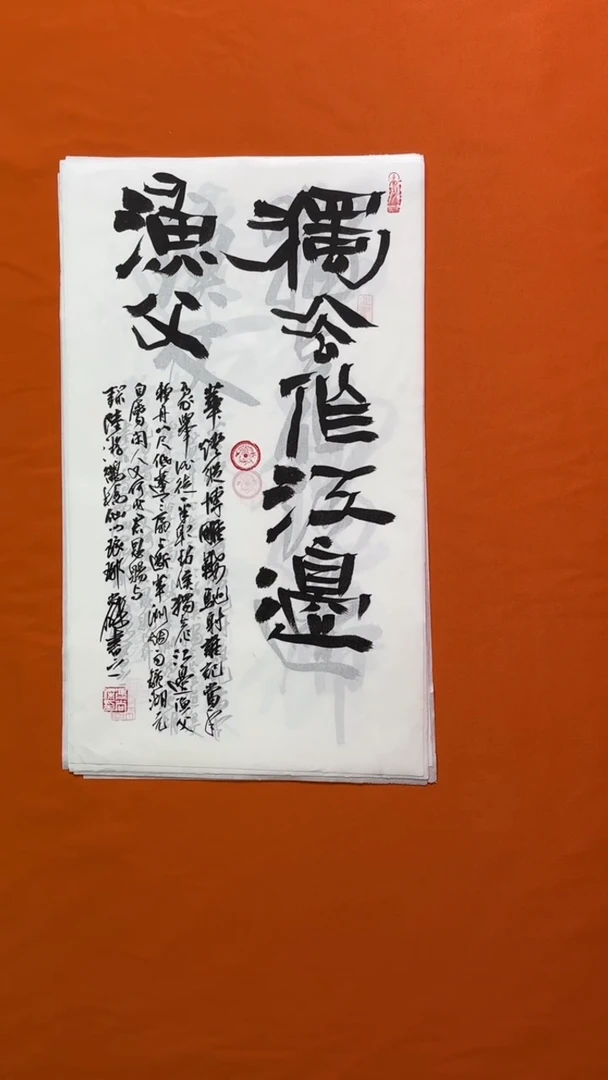 獨去作江邊
漁父
華燈縱博雕鞍馳射誰記當年
豪舉酒徒一半取封侯獨去作江邊漁父
輕舟八尺低篷三扇占斷蘋洲煙雨鏡湖元
自屬閑人又何必君恩賜與
錄陸游鵲橋仙 書